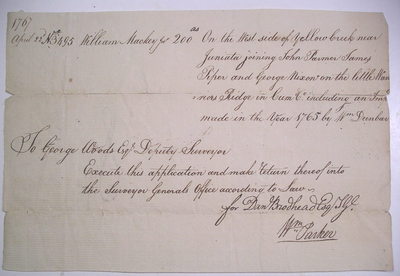 1767
April 22 No 3495 William Mackey for 200 as On the West side of Yellow Creek near
Juniata joining John Parmer James
Piper and George Nixon on the little War
riors Ridge in Cum Co including an Imt
made in the Year 1765 by Wm Dunbar
To George Woods Esqr Deputy Surveyor
Execute this application and make Return thereof into
the Surveyor Generals Office according to Law
for Danl Brodhead Esqr S Gl
Wm Parker